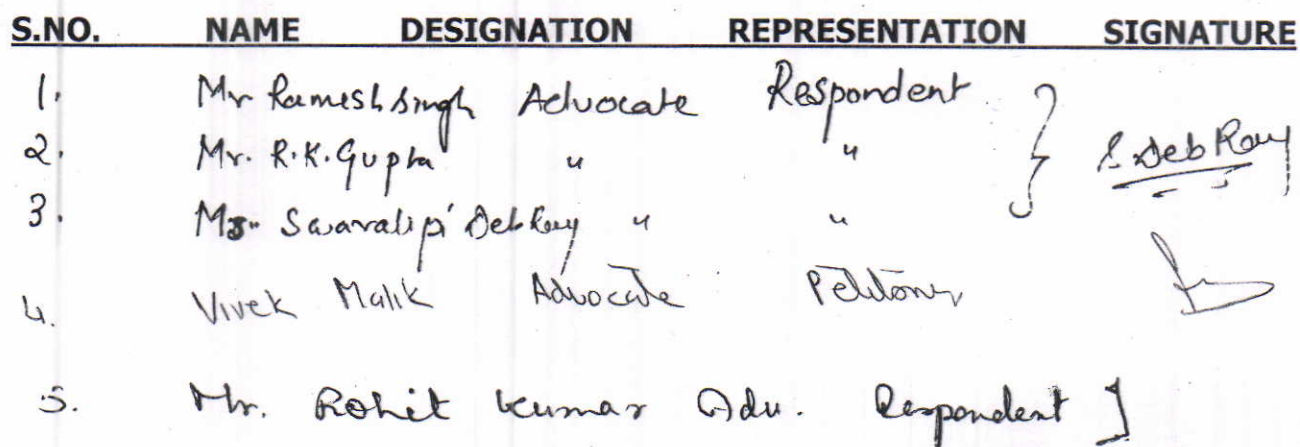 S.NO. NAME DESIGNATION REPRESENTATION SIGNATURE
1. Mr Ramesh Singh Advocate Respondent
2. Mr. R.K. Gupta " " S. Deb Roy
3. Ms. Swaralipi Deb Roy " "
4. Vivek Malik Advocate Petitioner
5. Mr. Rohit Kumar Adv. Respondent